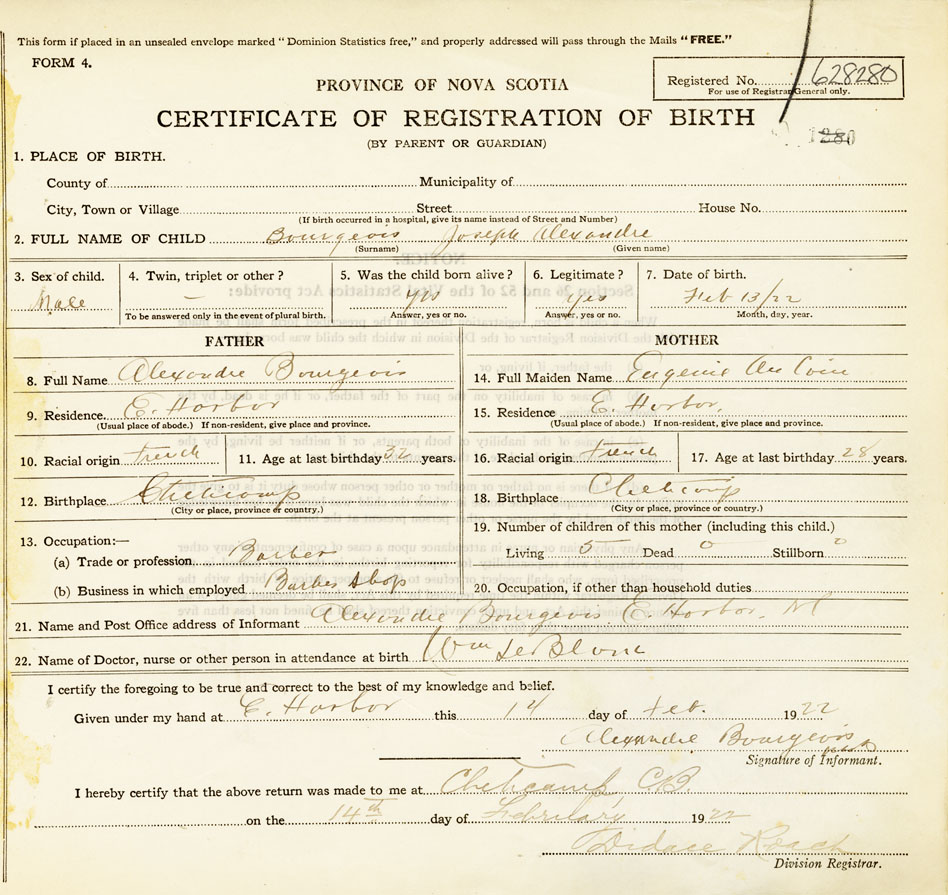 This form if placed in an unsealed envelope marked "Dominion Statistics free," and properly addressed will pass through the Mails "FREE."
FORM 4.
Registered No. 628280
For use of Registrar General only.
PROVINCE OF NOVA SCOTIA
CERTIFICATE OF REGISTRATION OF BIRTH
(BY PARENT OR GUARDIAN)
1. PLACE OF BIRTH.
County of Municipality of
City, Town or Village Street House No.
(If birth occurred in a hospital, give its name instead of Street and Number)
2. FULL NAME OF CHILD Bourgeois Joseph Alexandre
(Surname) (Given name)
3. Sex of child. 4. Twin, triplet or other? 5. Was the child born alive? 6. Legitimate? 7. Date of birth.
Male — yes yes Feb 13/22
To be answered only in the event of plural birth. Answer, yes or no. Answer, yes or no. Month, day, year.
FATHER MOTHER
8. Full Name Alexandre Bourgeois 14. Full Maiden Name Eugenie Au Coin
9. Residence. E. Harbor 15. Residence E. Harbor.
(Usual place of abode.) If non-resident, give place and province. (Usual place of abode.) If non-resident, give place and province.
10. Racial origin French 11. Age at last birthday 32 years. 16. Racial origin French 17. Age at last birthday 28 years.
12. Birthplace Cheticamp 18. Birthplace Cheticamp
(City or place, province or country.) (City or place, province or country.)
13. Occupation:— 19. Number of children of this mother (including this child.)
(a) Trade or profession Barber Living 5 Dead 0 Stillborn 0
(b) Business in which employed Barber shop 20. Occupation, if other than household duties
21. Name and Post Office address of Informant Alexandre Bourgeois. E. Harbor,
22. Name of Doctor, nurse or other person in attendance at birth Wm LeBlanc
I certify the foregoing to be true and correct to the best of my knowledge and belief.
Given under my hand at E. Harbor this 14 day of Feb. 1922
Alexandre Bourgeois
Signature of Informant.
I hereby certify that the above return was made to me at Cheticamp, C.B.
on the 14th day of February 1922
Didace Roach
Division Registrar.